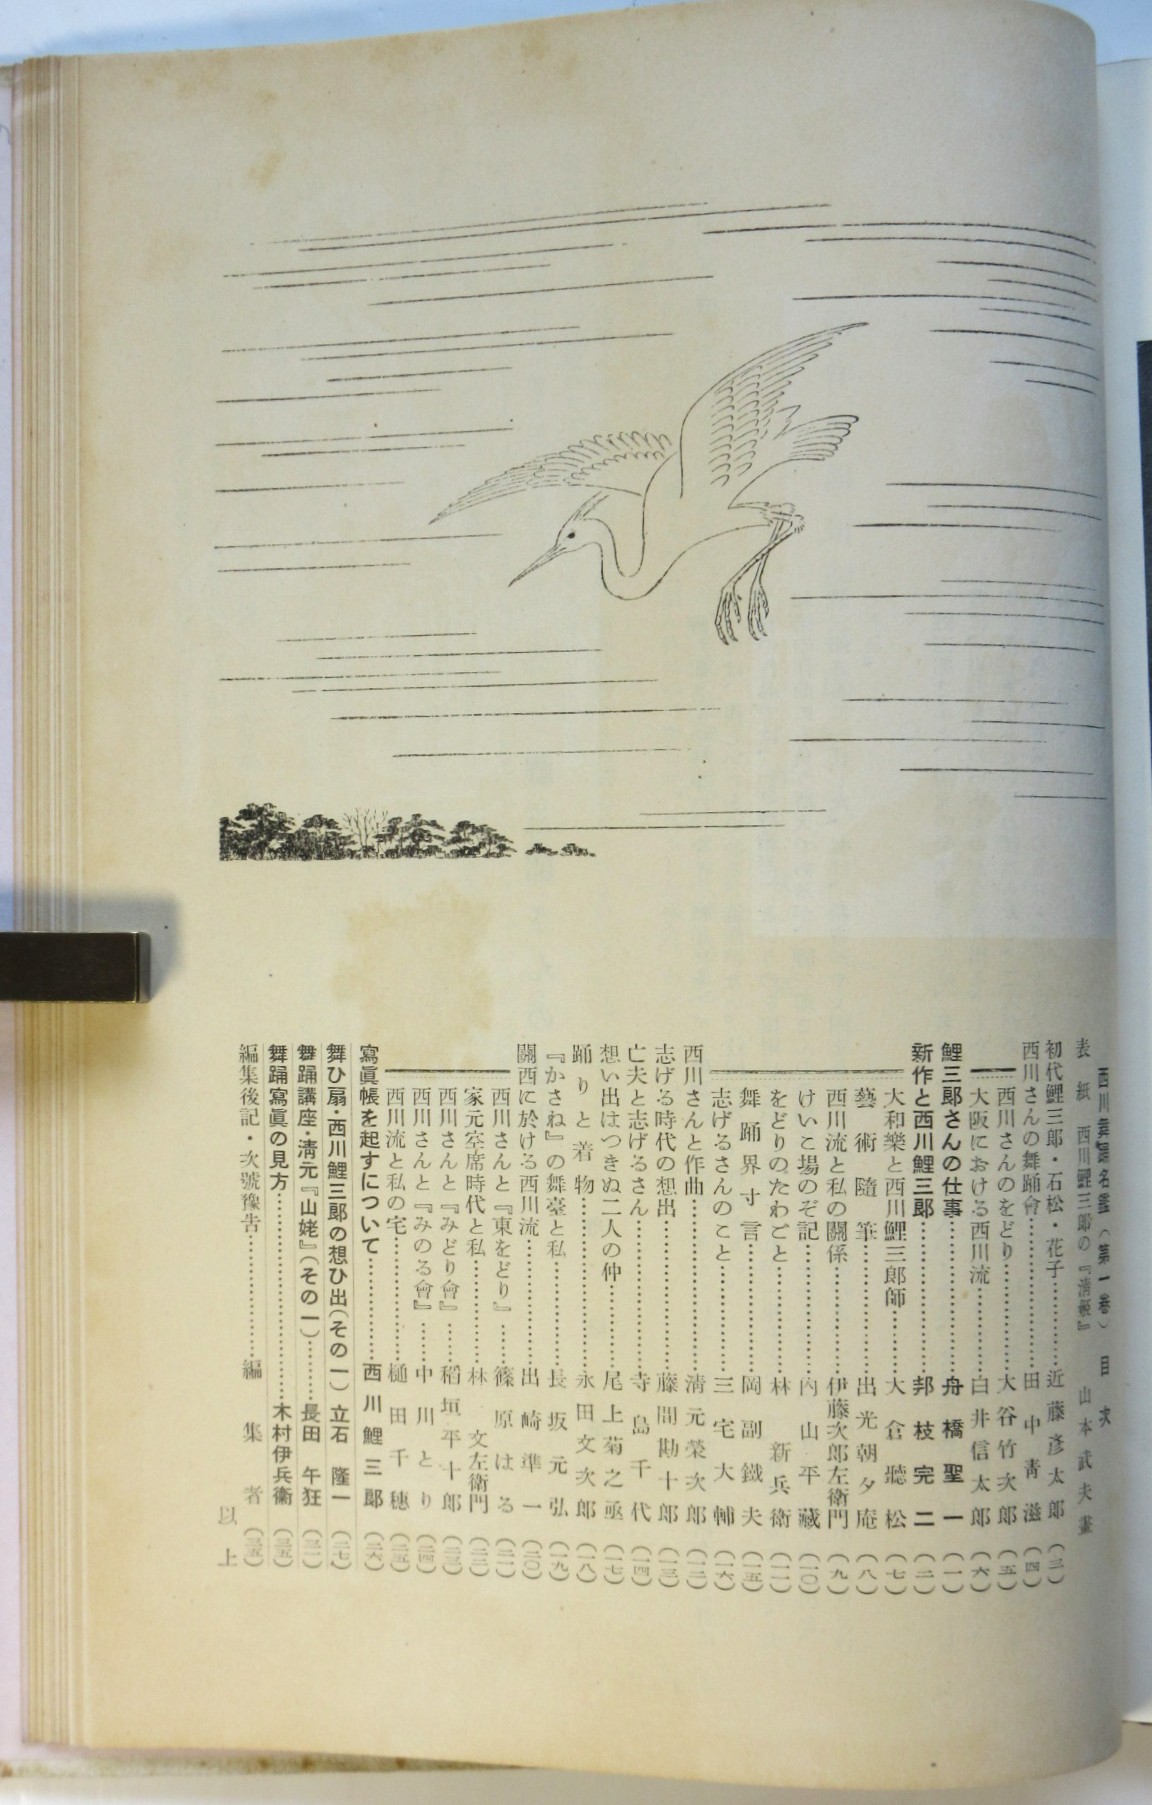 西川舞踊名鑑(第一巻) 目次
表紙 西川鯉三郎の『淸姬』 山本武夫畫
初代鯉三郎・石松・花子…………近藤彦太郎(三)
西川さんの舞踊會…………田中靑滋(四)
西川さんのをどり…………大谷竹次郎(五)
大阪における西川流…………白井信太郎(六)
鯉三郎さんの仕事…………舟橋聖一(一)
新作と西川鯉三郎…………邦枝完二(二)
大和樂と西川鯉三郎師…………大倉聽松(七)
藝術隨筆…………出光朝夕庵(八)
西川流と私の關係…………伊藤次郎左衞門(九)
けいこ場のぞ記…………內山平藏(一〇)
をどりのたわごと…………林新兵衞(一一)
舞踊界寸言…………岡副鐵夫(一五)
志げるさんのこと…………三宅大輔(一六)
西川さんと作曲…………淸元榮次郎(一二)
志げる時代の想出…………藤間勘十郎(一三)
亡夫と志げるさん…………寺島千代(一四)
想い出はつきぬ二人の仲…………尾上菊之亟(一七)
踊りと着物…………永田文次郎(一八)
『かさね』の舞臺と私…………長坂元弘(一九)
關西に於ける西川流…………出崎準一(二〇)
西川さんと『東をどり』……篠原はる(二一)
家元空席時代と私…………林文左衞門(二二)
西川さんと『みどり會』……稻垣平十郎(二三)
西川さんと『みのる會』……中川とり(二四)
西川流と私の宅…………樋田千穗(二五)
寫眞帳を起すについて…………西川鯉三郎(二六)
舞ひ扇・西川鯉三郎の想ひ出(その一) 立石隆一(二七)
舞踊講座・淸元『山姥』(その一)……長田午狂(三一)
舞踊寫眞の見方…………木村伊兵衞(三五)
編集後記・次號豫告…………編集者(三五)
以上